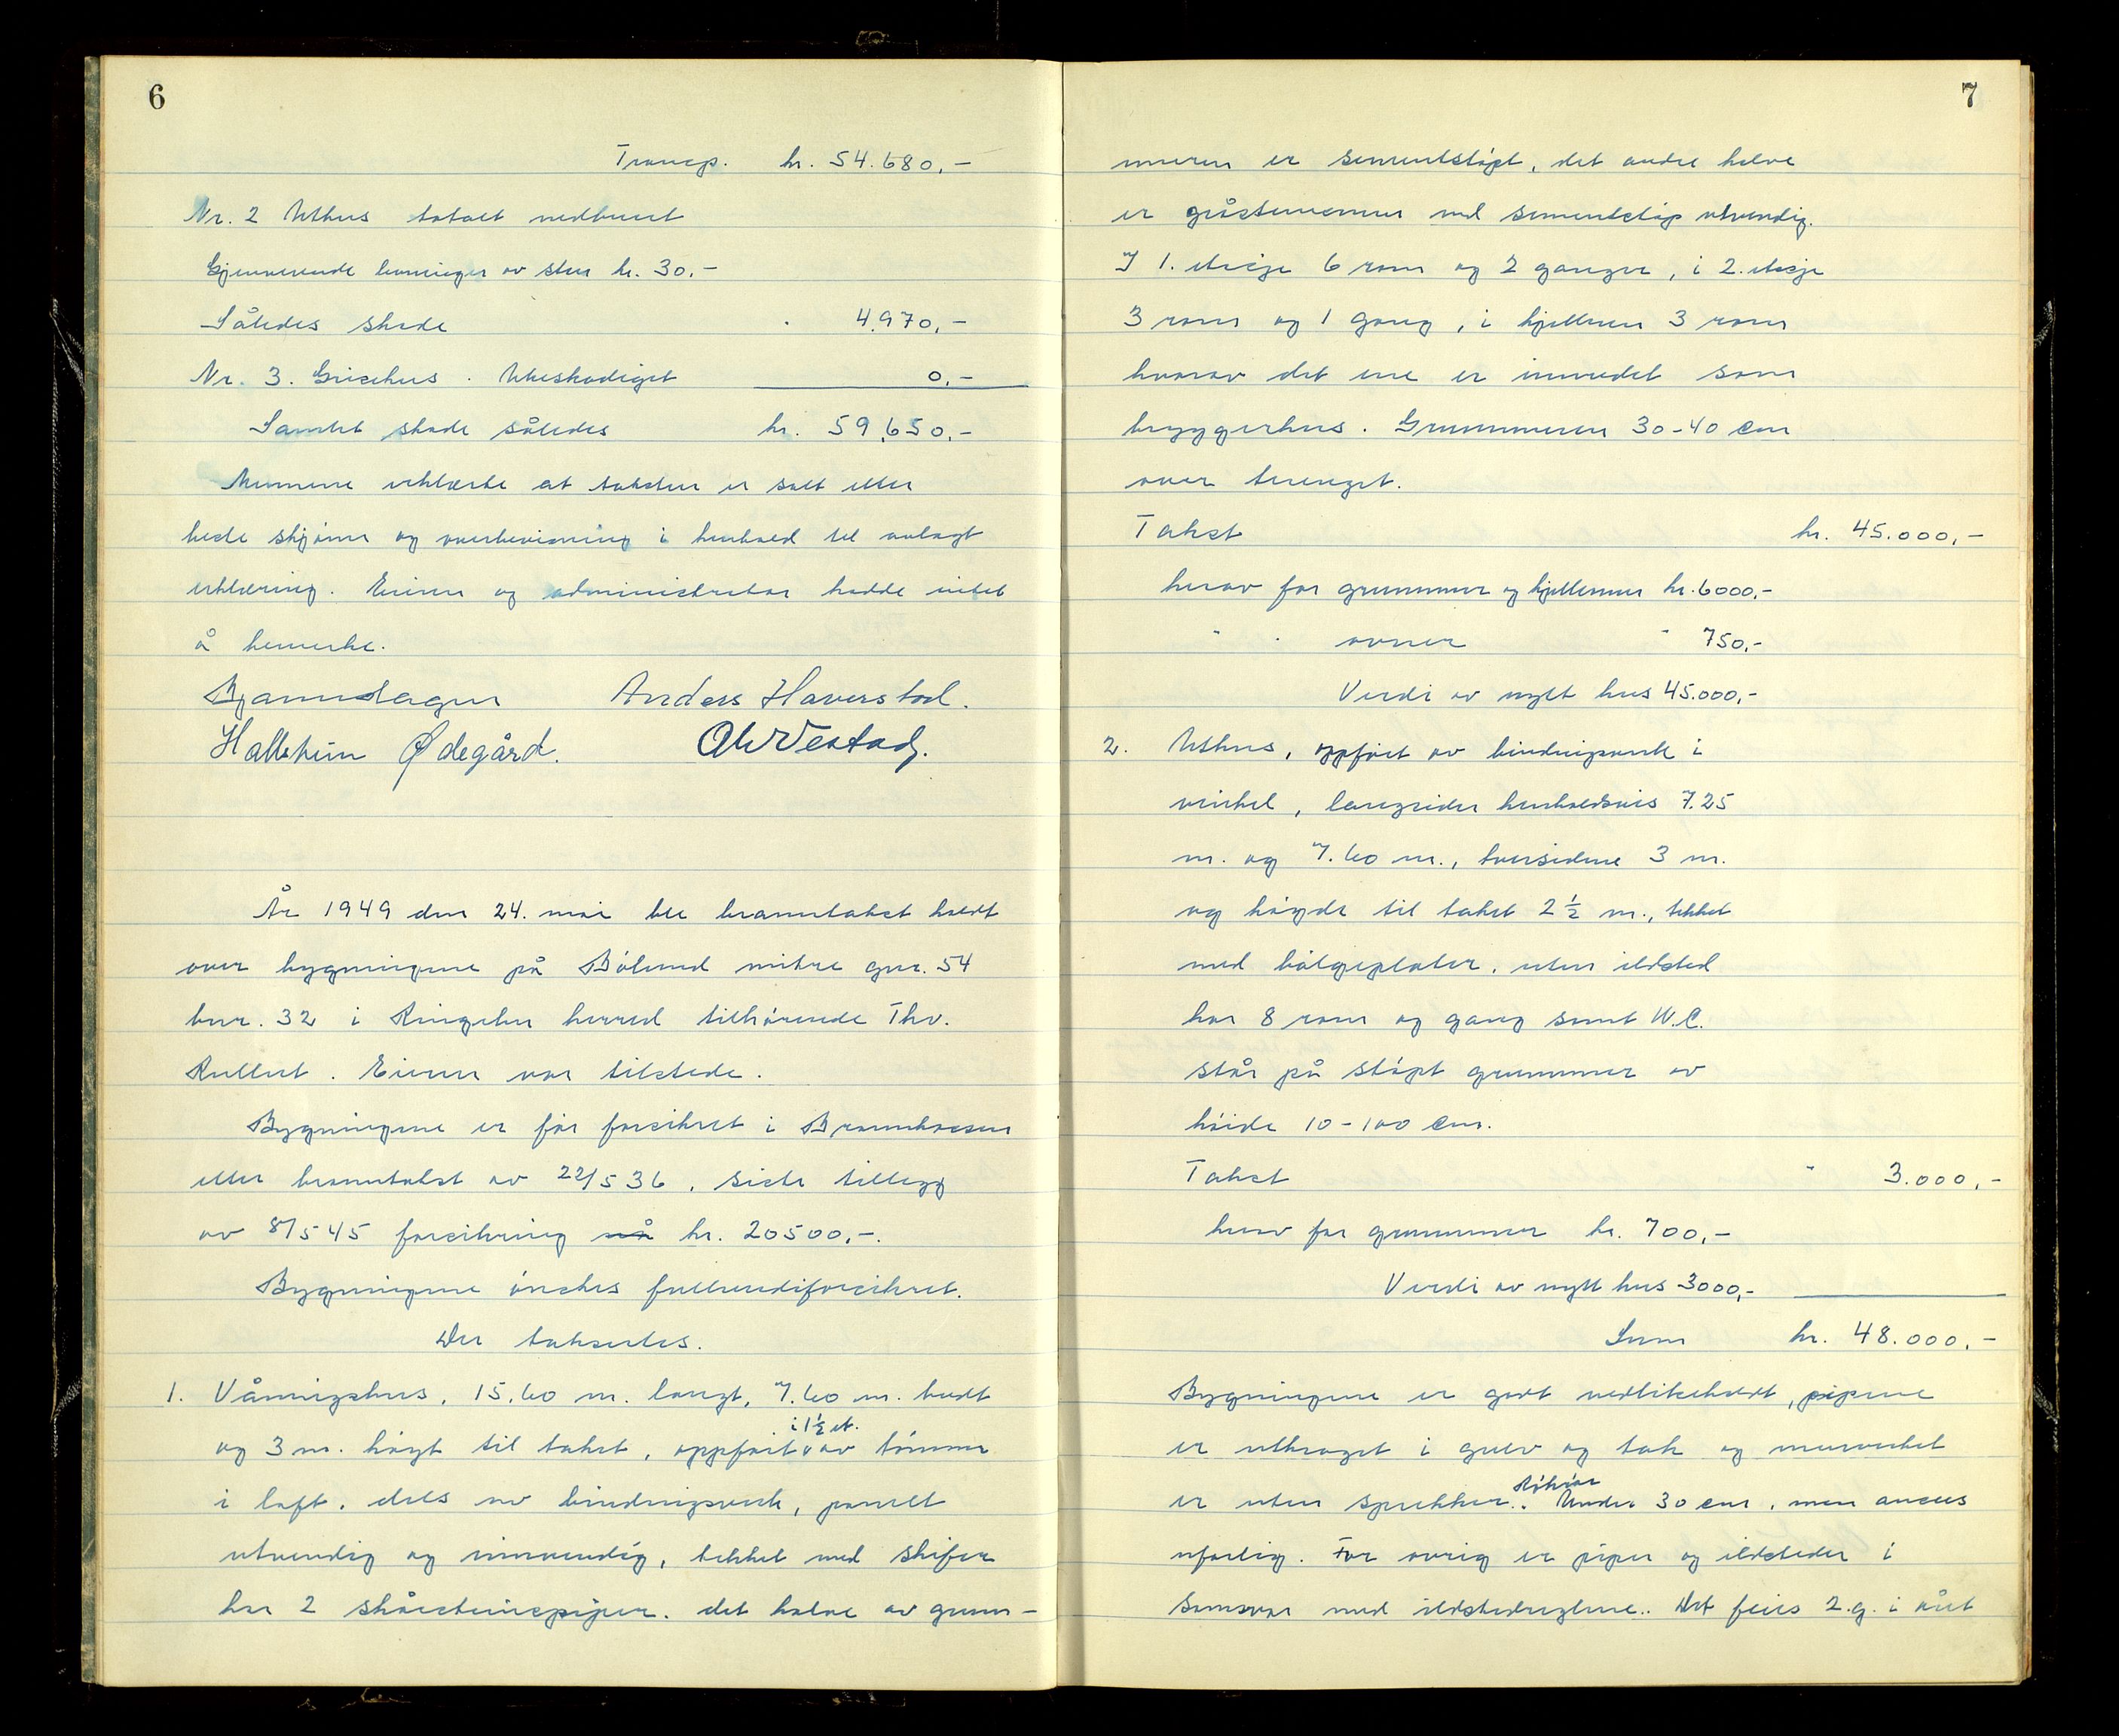 6
Transp. kr. 54.680,-
Nr. 2 Uthus totalt nedbrent
Gjenværende levninger av stur kr. 30.-
Således skade " 4.970,-
Nr. 3. Grisehus. Ubeskadiget 0,-
Samlet skade således kr. 59.650,-
Mennene erklærte at taksten er satt etter
beste skjønn og overbevisning i henhold til avlagt
erklæring. Eieren og administrator hadde intet
å bemerke.
Anders Haverstad.
Hallstein Ødegård.
År 1949 den 24. mai ble branntakst holdt
over bygningene på Bølund nitre gnr. 54
bnr. 32 i Ringebu herred tilhørende Thv.
Rullut. Eieren var tilstede.
Bygningene er før forsikret i Brannkassen
etter branntakst av 22/5 36, siste tillegg
av 8/5 45 forsikring nå kr. 20500,-.
Bygningene ønskes fullverdiforsikret.
Der takseres.
1. Våningshus, 15.60 m. langt, 7.60 m. bredt
i 1½ et.
og 3 m. høyt til taket, oppført av tømmer
i laft, dels av bindingsverk, panelt
utvendig og innvendig, tekket med skifer
har 2 skårsteinspiper. det halve av grunn-
7
muren er sementstøpt, det andre halve
er gråsteinsmur med sementstøp utvendig.
I 1. etasje 6 rom og 2 ganger, i 2. etasje
3 rom og 1 gang, i kjelleren 3 rom
hvorav det ene er innredet som
bryggerhus. Grunnmuren 30-40 cm
over terenget.
Takst kr. 45.000,-
herav for grunnmur og kjellermur kr. 6000,-
" " ovner " 750,-
Verdi av nytt hus 45.000,-
2. Uthus, oppført av bindingsverk i
vinkel, langsider henholdsvis 7.25
m. og 7.60 m., tversidene 3 m.
og høyde til taket 2 ½ m., tekket
med bølgeplater, uten ildsted
har 8 rom og gang samt W.C.
står på støpt grunnmur av
høide 10-100 cm.
Takst " 3.000,-
herav for grunnmur kr. 700,-
Verdi av nytt hus 3000,-
Sum kr. 48.000,-
Bygningene er godt vedlikeholdt, pipene
er utkraget i gulv og tak og murverket
Rökrör
er uten sprekker. Under 30 cm, men ansees
ufarlig. For øvrig er piper og ildsteder i
samsvar med ildstedreglene. Det feies 2.g. i året